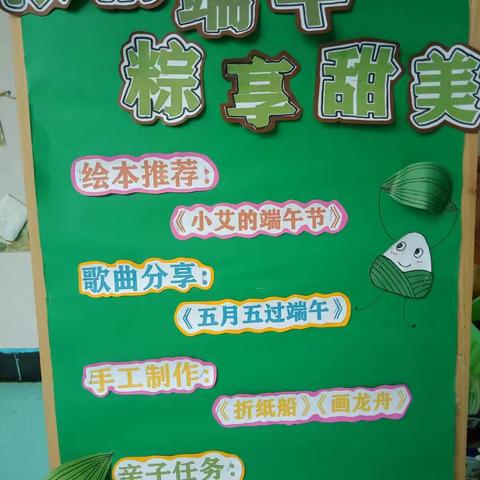 端午
粽享甜美
绘本推荐:
《小艾的端午节》
歌曲分享:
《五月五过端午》
手工制作:
《折纸船》《画龙舟》
亲子任务: